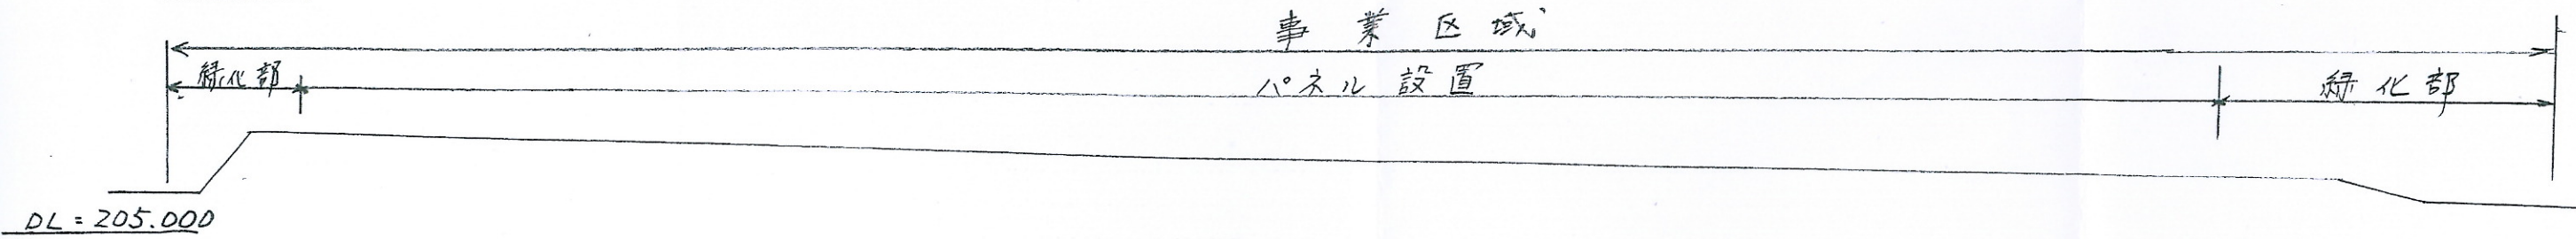 事業区域
緑化部
パネル設置
緑化部
DL=205.000